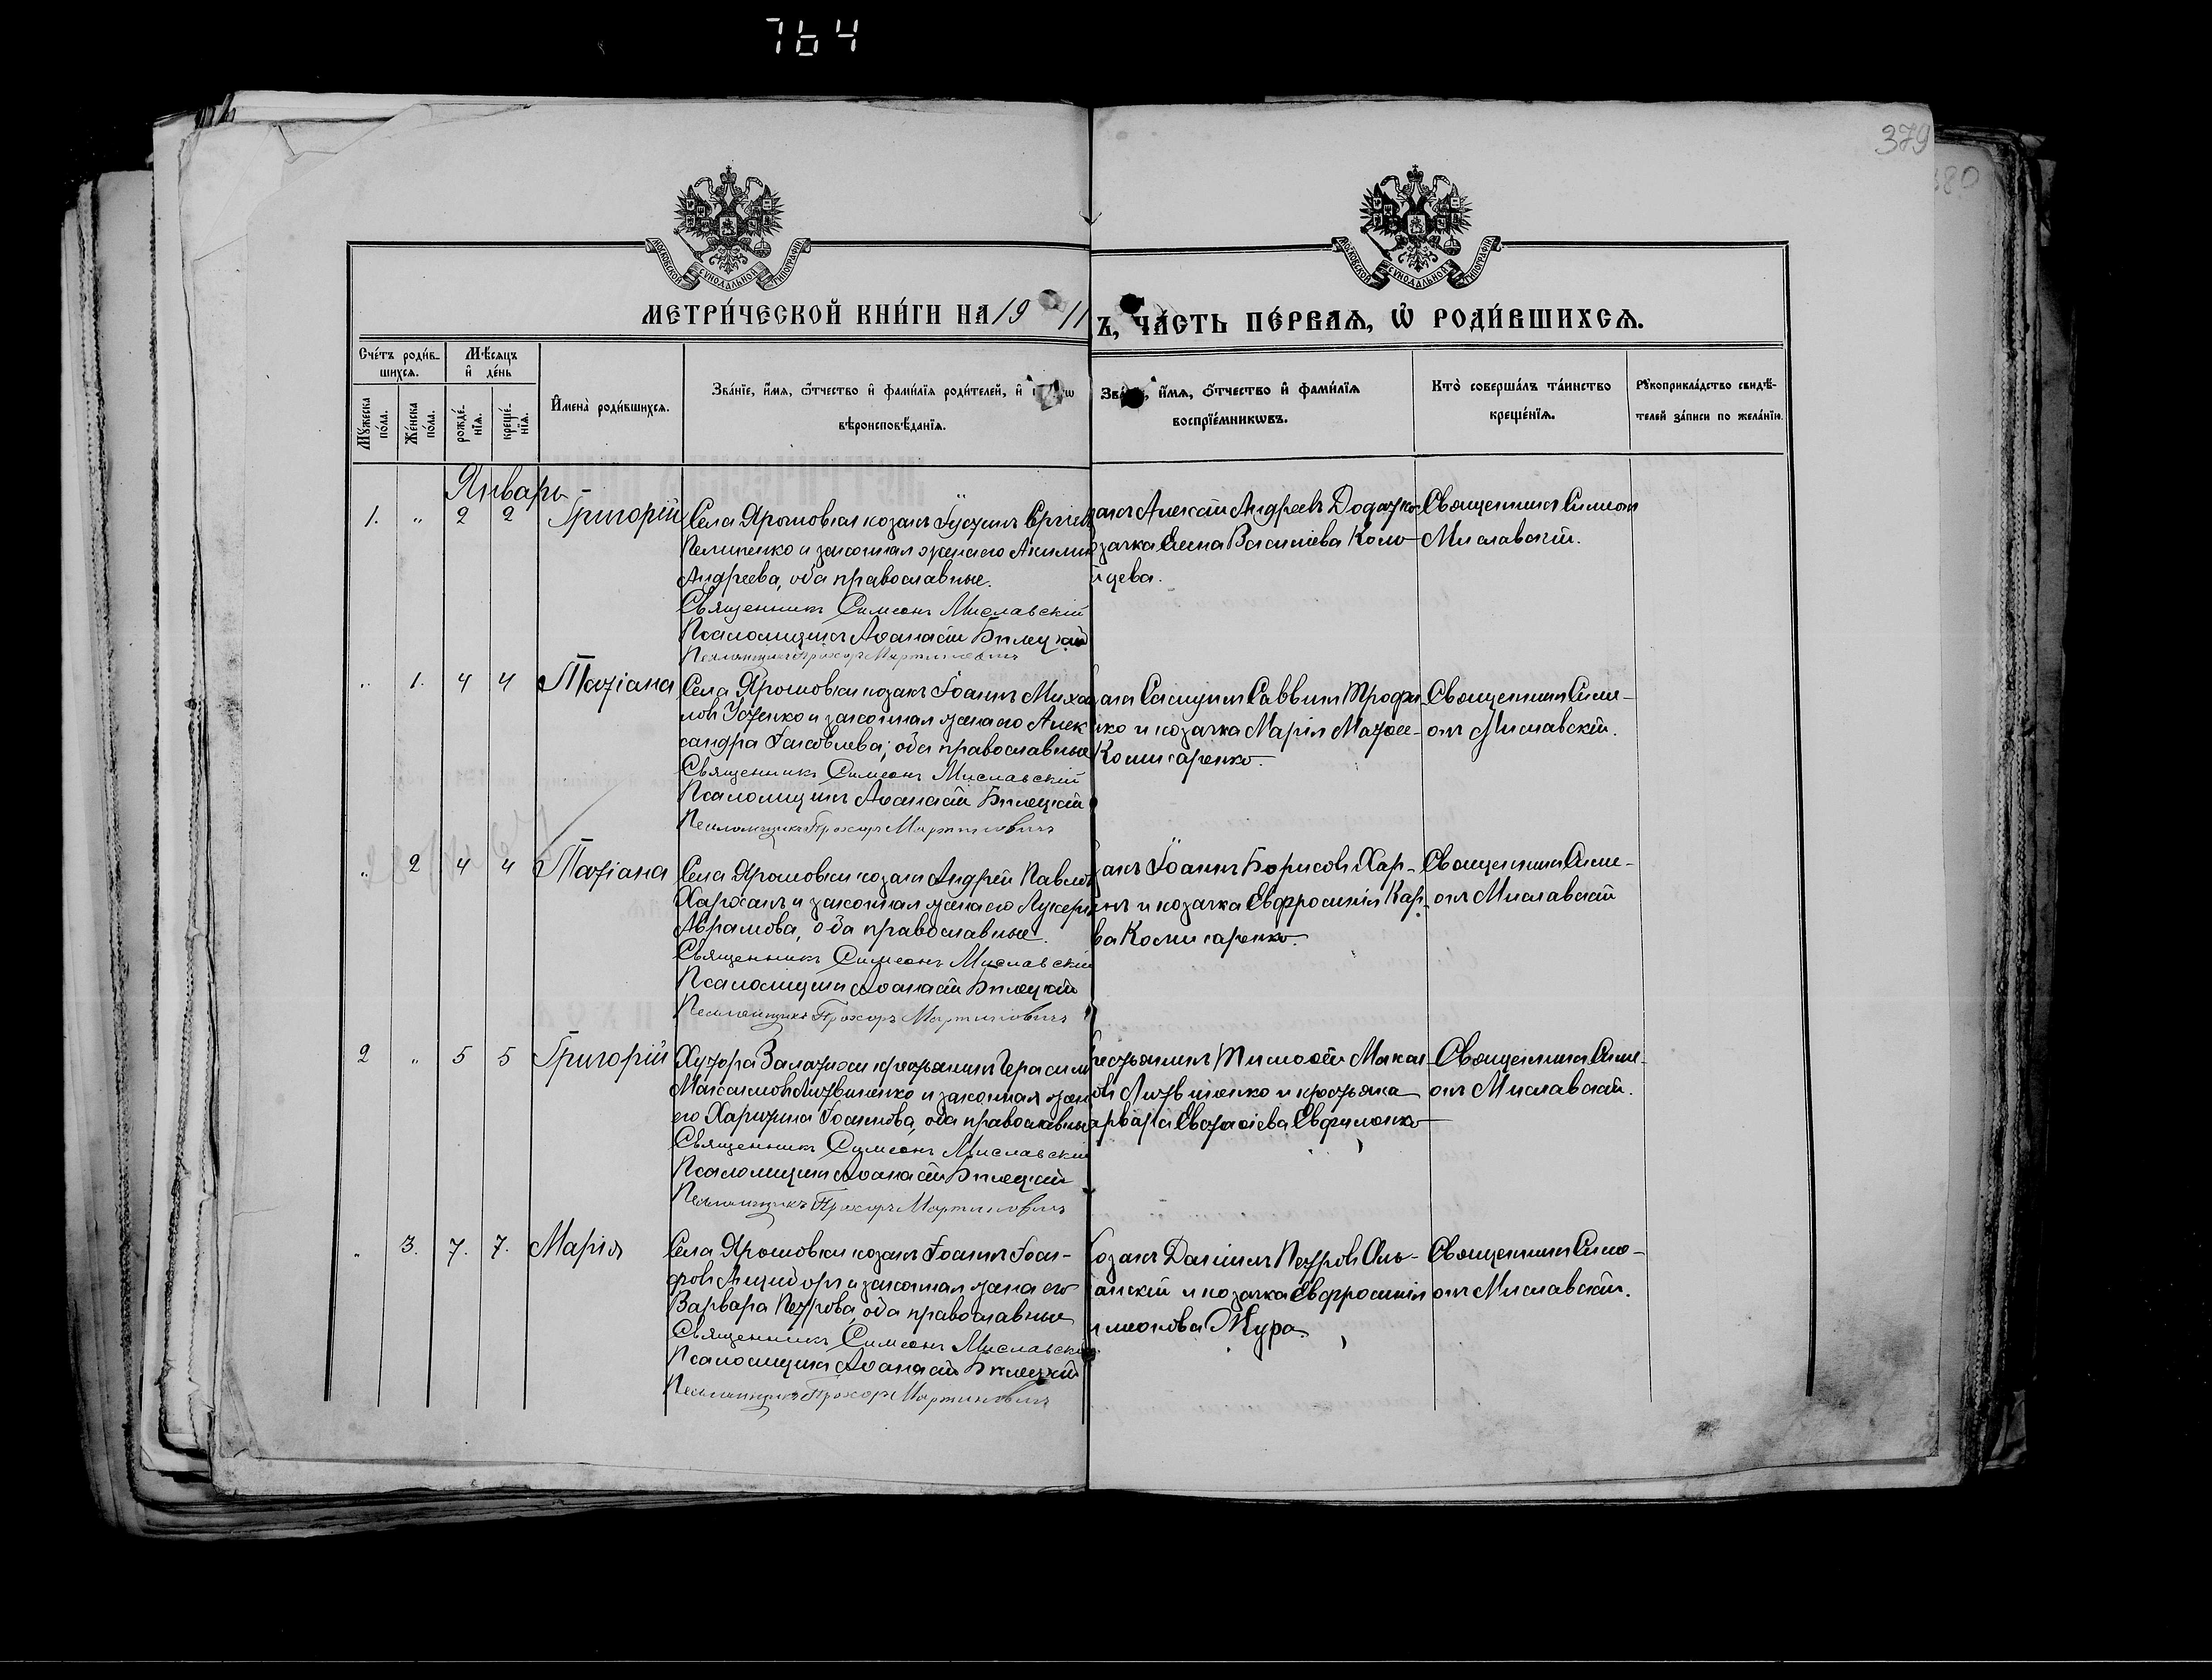 764
379
380
МОСКОВСКОЙ СУНОДАЛЬНОЙ ТИПОГРАФІИ
МОСКОВСКОЙ СУНОДАЛЬНОЙ ТИПОГРАФІИ
МЕТРИ́ЧЕСКОЙ КНИ́ГИ НА 1911
Ъ, ЧА́СТЬ ПЕ́РВАѦ, Ѡ҆ РОДИ́ВШИХСѦ.
Сче́тъ роди́в-
шихсѧ.
Мѣ́сѧцъ
и҆ де́нь
Мꙋ́жеска по́ла.
Же́нска по́ла.
рожде́-
нїѧ.
креще́-
нїѧ.
И҆мена̀ роди́вшихсѧ.
Зва́нїе, и҆́мѧ, ѻ҆́тчество и҆ фами́лїѧ роди́телей, и҆
вѣроисповѣ́данїѧ.
и҆́мѧ, ѻ҆́тчество и҆ фами́лїѧ
воспрїе́мникѡвъ.
Кто̀ соверша́лъ та́инство
креще́нїѧ.
Рꙋкоприкла́дство свидѣ́-
телей за́писи по жела́нїю.
Январь
1. „ 2 2 Григорій
Села Ярошовки козакъ Іустинъ Сергіев
Пелипенко и законная жена его Акилин
Андреева, оба православные.
Священникъ Симеонъ Миславскій
Псаломщикъ Аѳанасій Билецкій
Псаломщикъ Прохоръ Мартиновичъ
закъ Алексій Андреевъ Додатко
зачка Елена Васильева Коло
йцева.
Священникъ Симеон
Миславскій.
„ 1. 4 4 Татіана
Села Ярошовки козакъ Іоаннъ Миха
ловъ Усенко и законная жена его Алек
сандра Іаковлева, оба православные
Священникъ Симеонъ Миславскій
Псаломщикъ Аѳанасій Билецкій
Псаломщикъ Прохоръ Мартиновичъ
Саввинъ Трофи
нко и козачка Марія Матѳее-
Комисаренко.
Священникъ Симе-
онъ Миславскій.
„ 2 4 4 Татіана
Села Ярошовки козакъ Андрей Павлов
Харханъ и законная жена его Лукерія
Аврамова, оба православные.
Священникъ Симеонъ Миславскій
Псаломщикъ Аѳанасій Билецкій
Псаломщикъ Прохоръ Мартиновичъ
закъ Іоаннъ Борисовъ Хар-
анъ и козачка Евфросинія Кар-
ва Комисаренко.
Священникъ Симе-
онъ Миславскій
2 „ 5 5 Григорій
Хутора Залатихи крестьянинъ Герасим
Максимовъ Литвиненко и законная жен
его Харитина Іосифова, оба православные
Священникъ Симеонъ Миславскій
Псаломщикъ Аѳанасій Билецкій
Псаломщикъ Прохоръ Мартиновичъ
рестьянинъ Тимоѳей Макси
овъ Литвиненко и крестьянка
арвара Евстаѳіева Евфименко
Священникъ Симе-
онъ Миславскій.
„ 3. 7. 7. Марія
Села Ярошовки козакъ Іоаннъ Іоси-
фовъ и законная жена его
Варвара Петрова, оба православные
Священникъ Симеонъ Миславскій
Псаломщикъ Аѳанасій Билецкій
Псаломщикъ Прохоръ Мартиновичъ
козакъ Даніилъ Петровъ Оль-
анскій и козачка Евфросинія
имеонова Жура.
Священникъ Симе-
онъ Миславскій.